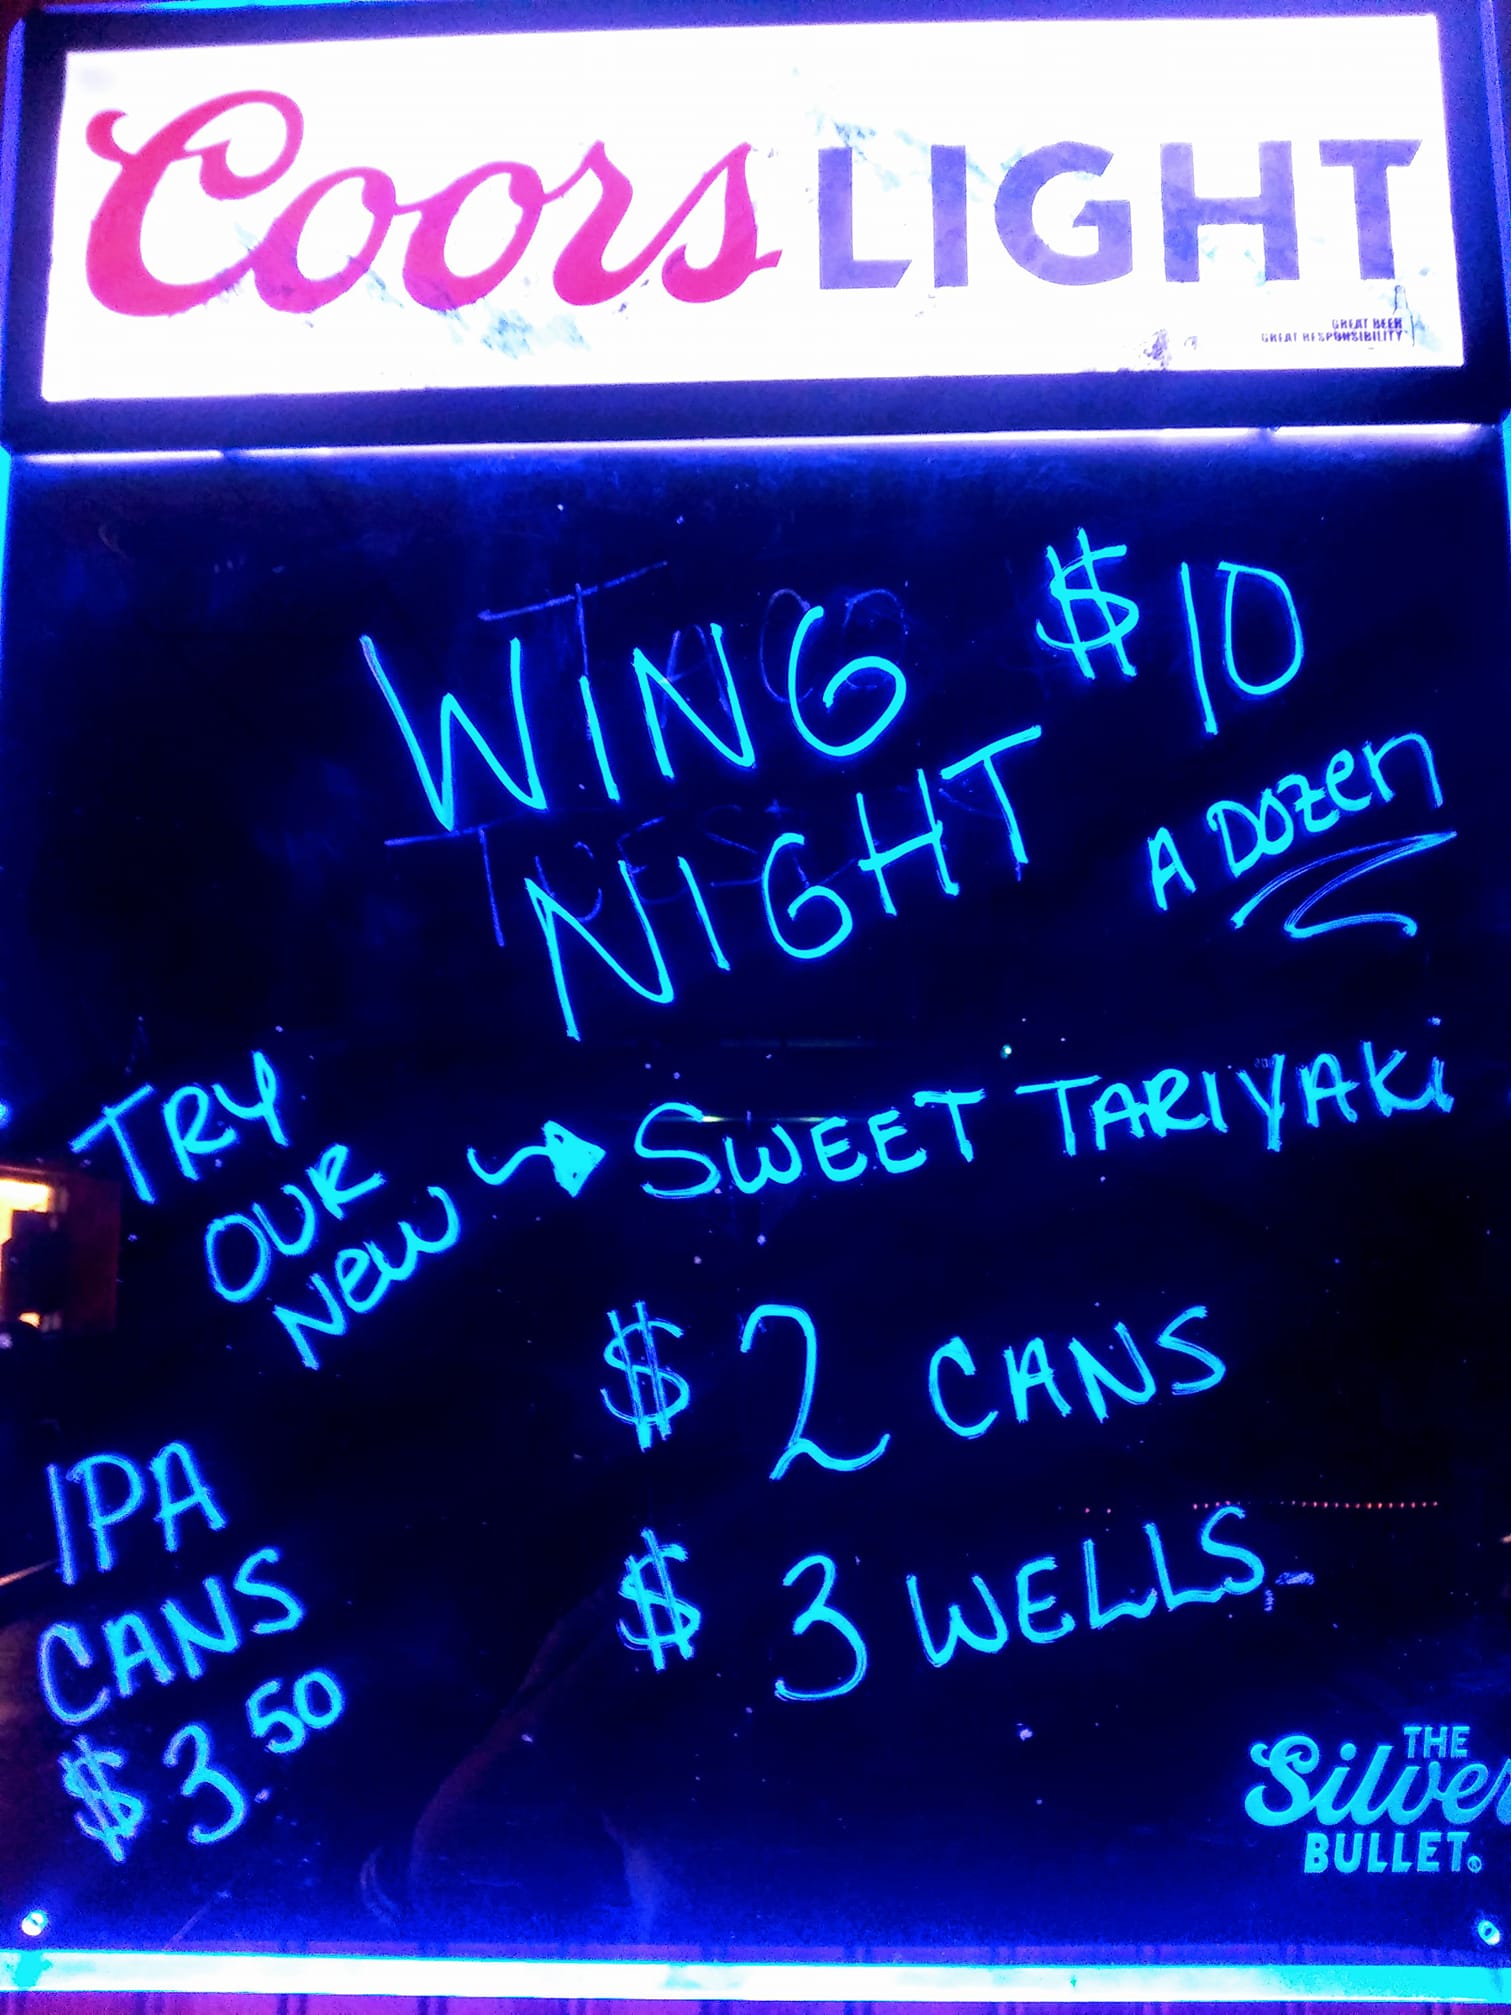 Coors LIGHT
GREAT BEER
GREAT RESPONSIBILITY
WING $10
NIGHT A DOZEN
TACO
TUES
TRY
OUR
NEW → SWEET TARIYAKI
$2 CANS
$3 WELLS
IPA
CANS
$3.50
THE
Silver
BULLET®